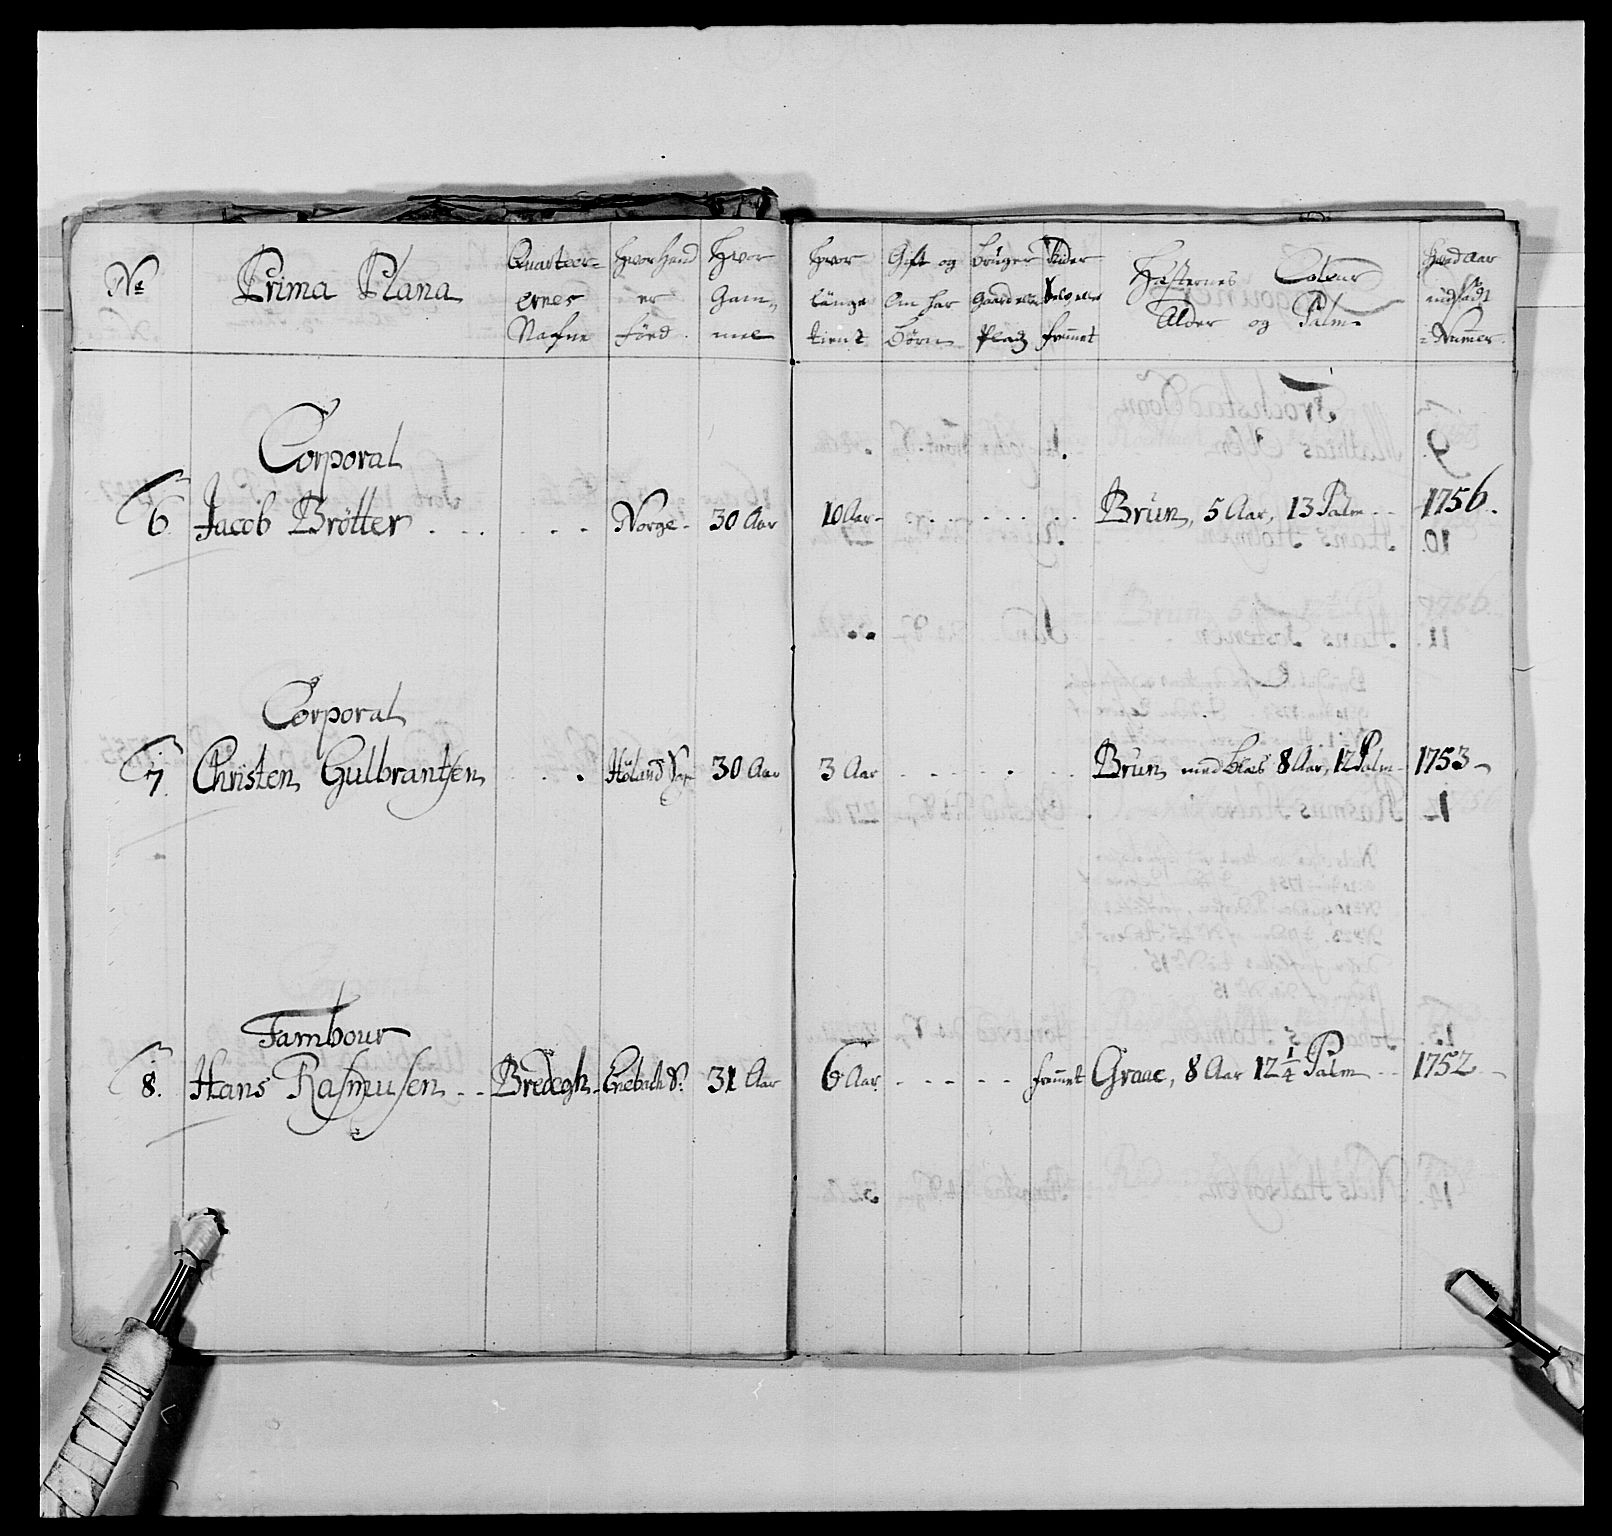 No
Prima Plana
Quarteer=
ernes
Nafne
Hvor hand
er
föed
Hvor
Gam„
mel
Hvor
länge
tient
Gift og
om har
Börn
Bruger
Gaard eller
Pladz
Rider
Selv eller
frömet
Hæsternes Coleur
Alder og Palm
Hvad aar
indsadt
Nummer
Corporal
6 Jacob Brötter Norge 30 Aar 10 Aar Brun, 5 Aar, 13 Palm 1756.
Corporal
7 Christen Gulbrantsen Höland 30 Aar 3 Aar Brun med blæs 8 Aar, 12 Palm 1753
Tambour
8. Hans Rasmusen Bredegh. Enebach S. 31 Aar 6 Aar frömet Graae, 8 Aar 12 1/4 Palm 1752